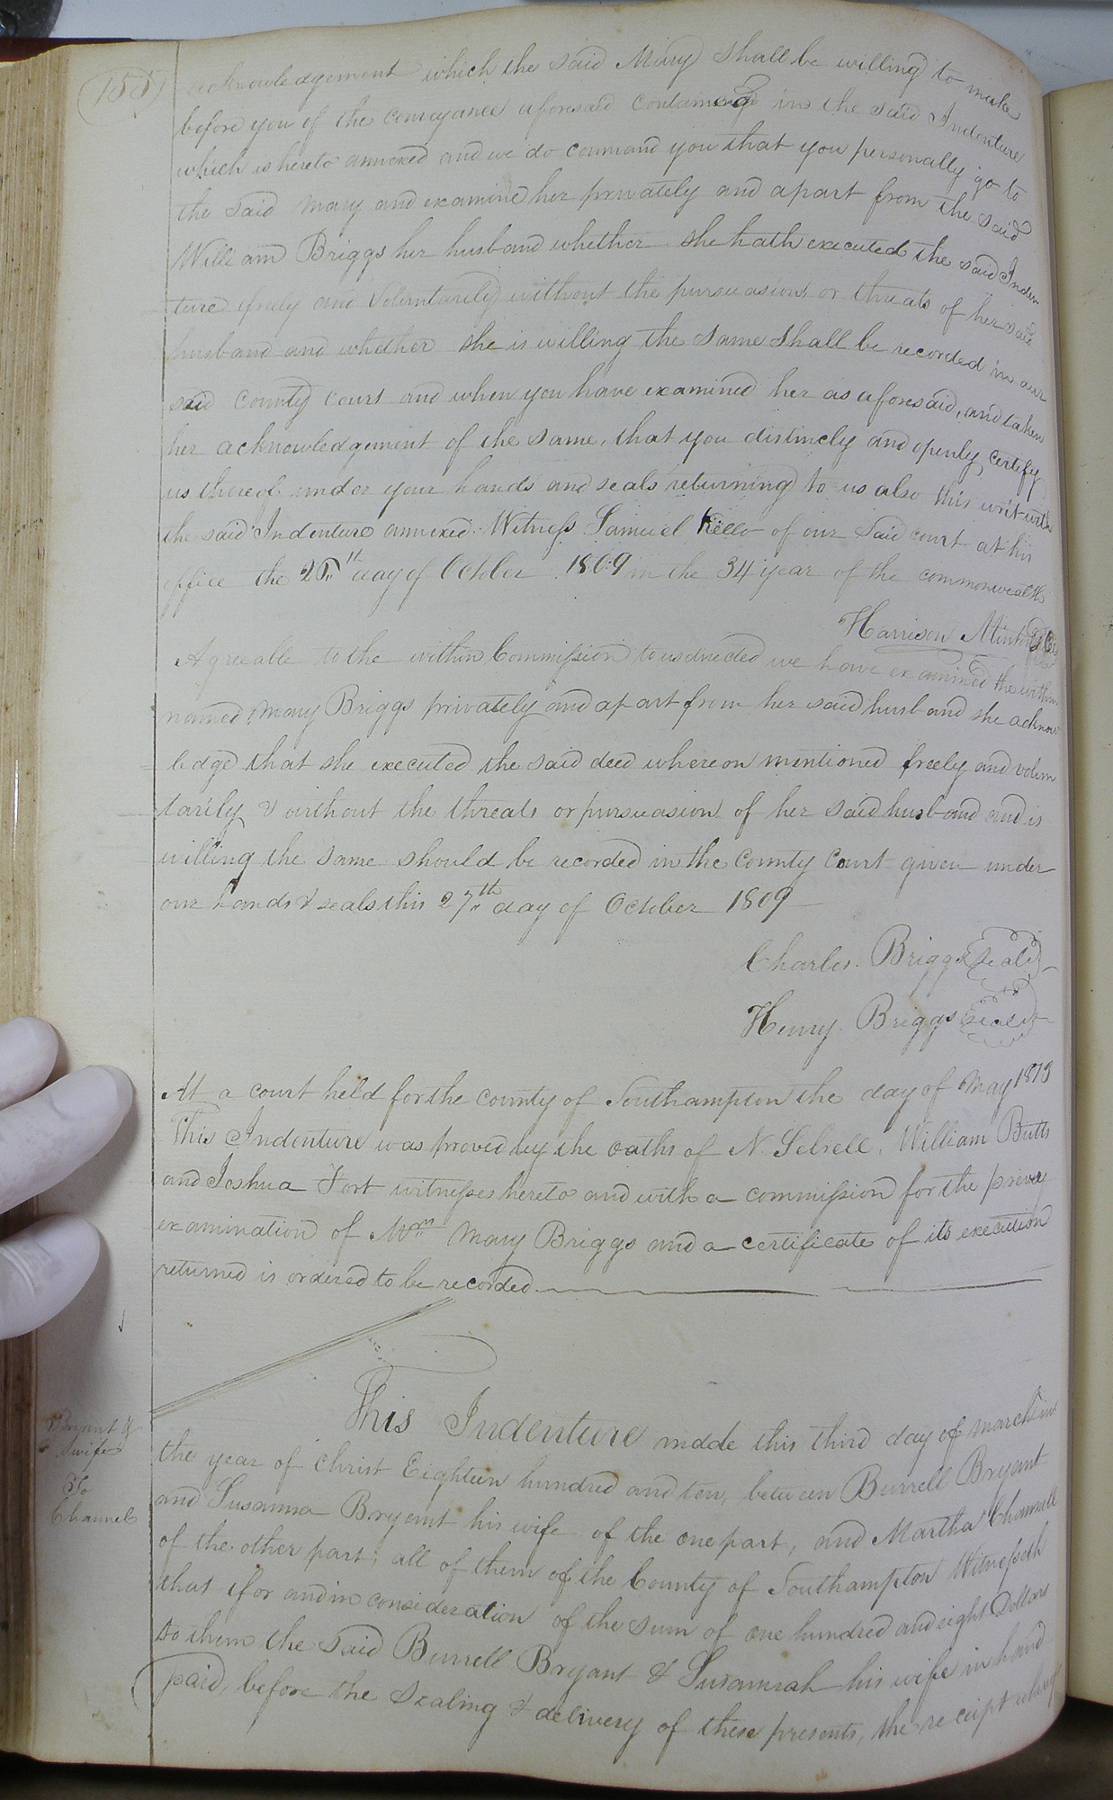 155
acknowledgement which the said Mary shall be willing to make
before you of the conveyance aforesaid contained in the said Indenture
which is hereto annexed and we do command you that you personally go to
the said Mary and examine her privately and apart from the said
William Briggs her husband whether she hath executed the said Inden
ture freely and Voluntarily without the pursuasions or threats of her said
husband and whether she is willing the same shall be recorded in our
said County Court and when you have examined her as aforesaid, and taken
her acknowledgement of the same, that you distincly and openly certify
us thereof under your hands and seals returning to us also this writ with
the said Indenture annexed. Witness Samuel Kello of our said court at his
office the 25th day of October 1809 in the 34 year of the commonwealth
Harrison Minton
Agreeable to the within Commission to us directed we have examined the within
named Mary Briggs privately and apart from her said husband she acknow
ledge that she executed the said deed whereon mentioned freely and volun
tarily & without the threats or pursuasion of her said husband and is
willing the same should be recorded in the County Court given under
our hands & seals this 27th day of October 1809
Charles Briggs seal
Henry Briggs seal
At a court held for the county of Southampton the day of May 1813
This Indenture was proved by the oaths of N. Sebrell, William Butts
and Joshua Fort witnesses hereto and with a commission for the privey
examination of Mrs Mary Briggs and a certificate of its execution
returned is ordered to be recorded
Bryant &
wife
To
Channel
This Indenture made this third day of march in
the year of Christ Eighteen hundred and ten, between Burrell Bryant
and Susanna Bryant his wife of the one part, and Martha Channell
of the other part; all of them of the County of Southampton Witnesseth
that for and in consideration of the sum of one hundred and eight Dollars
to them the said Burrell Bryant & Susannah his wife in hand
paid, before the Sealing & delivery of these presents, the receipt whereof